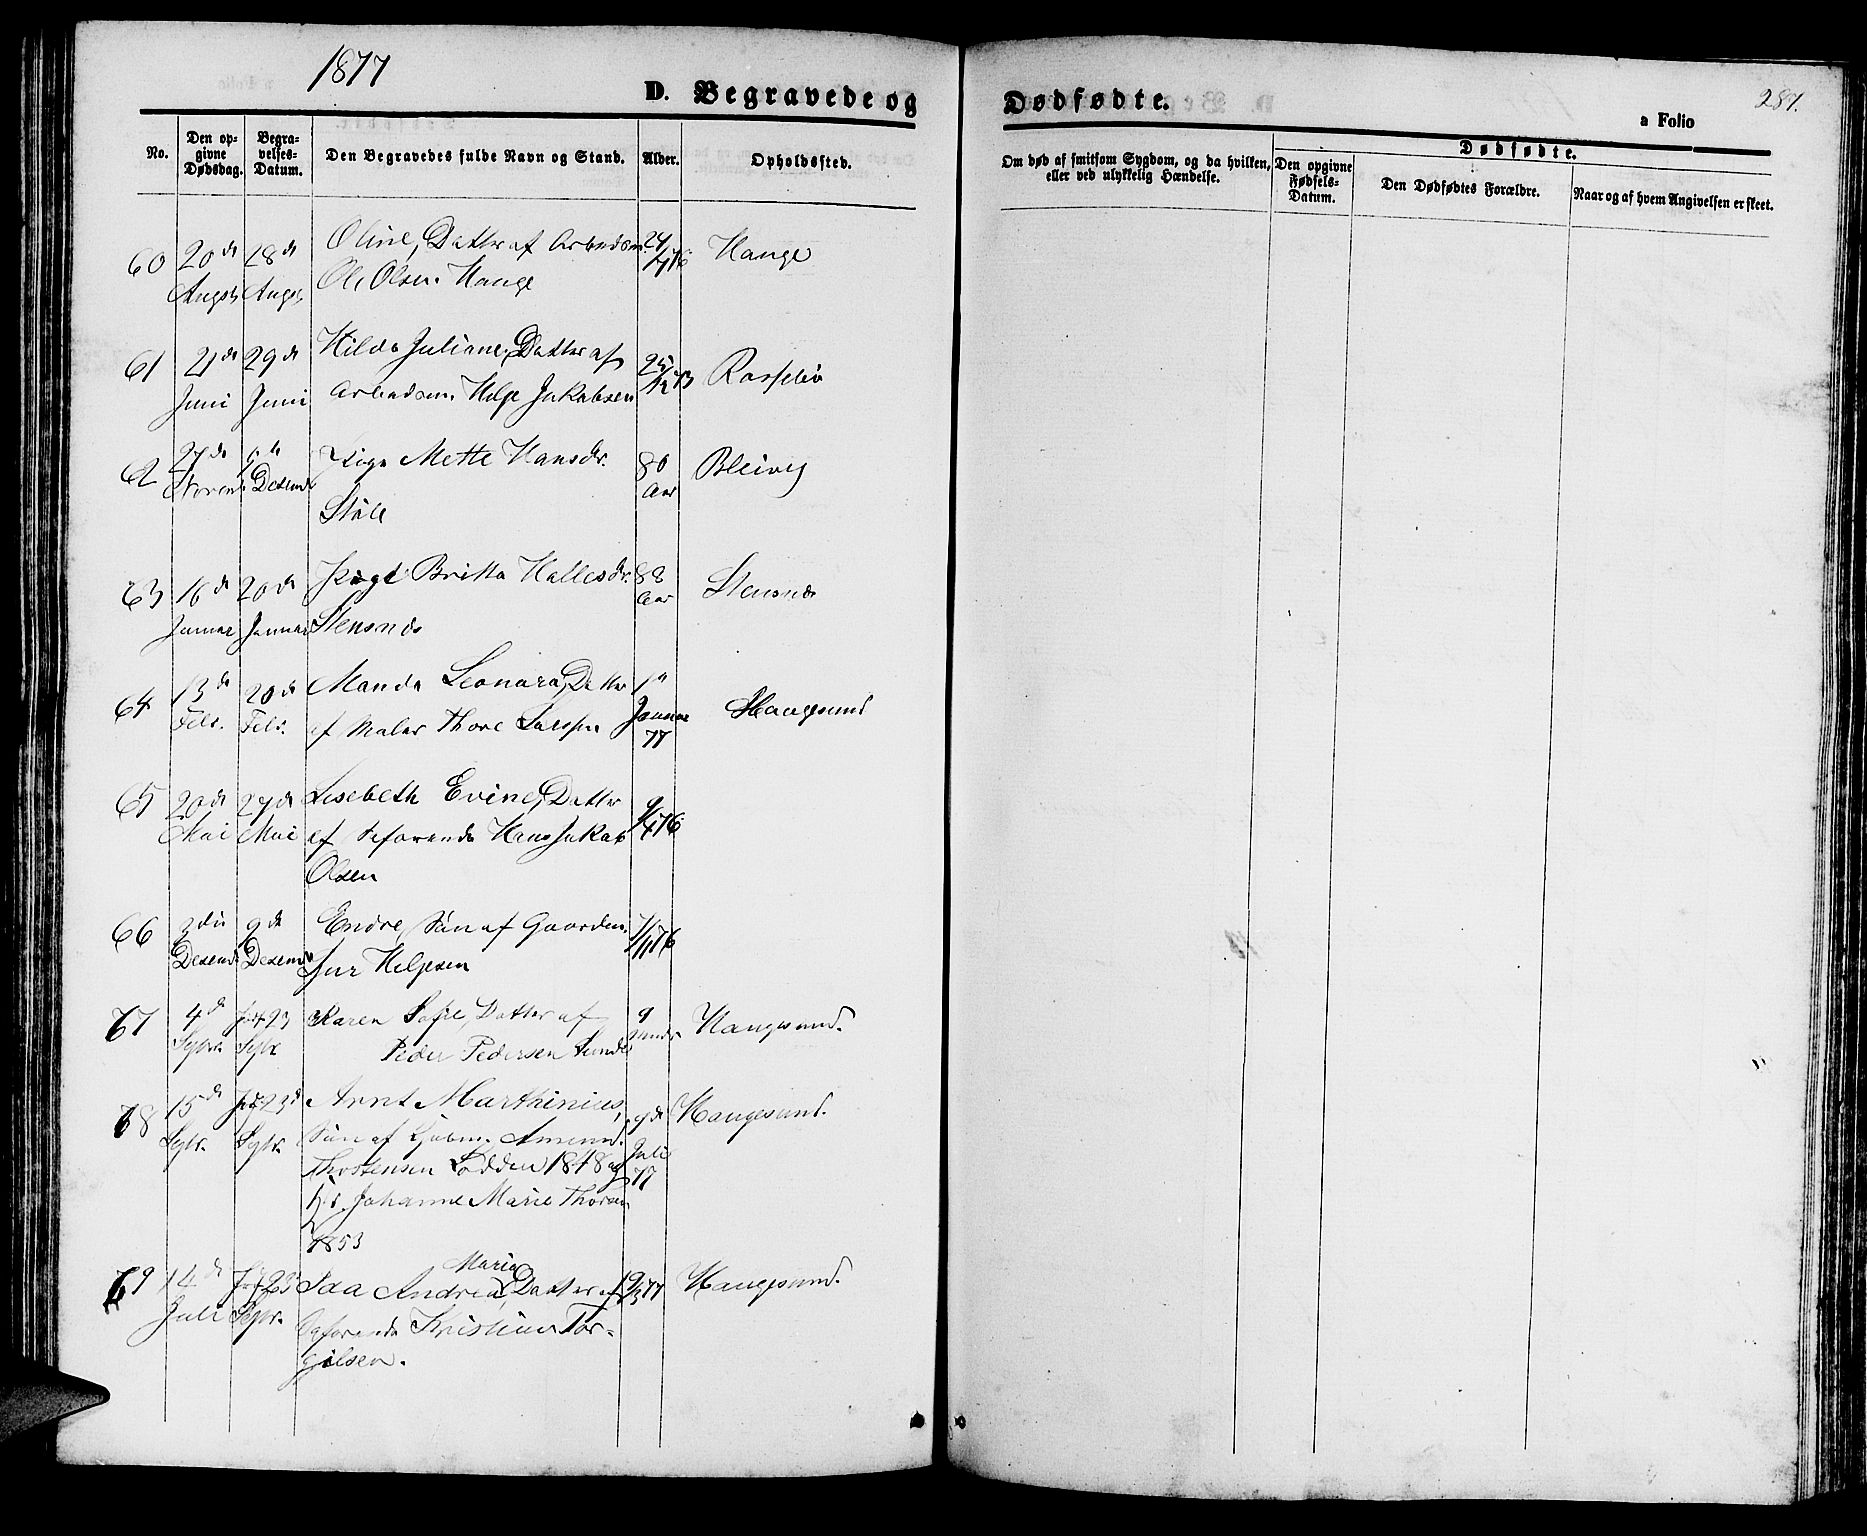 1877
287.
D. Begravede og Dødfødte.
a Folio
No.
Den opgivne Dødsdag.
Begravelses-Datum.
Den Begravedes fulde Navn og Stand.
Alder.
Opholdssted.
Om død af smitsom Sygdom, og da hvilken,
eller ved ulykkelig Hændelse.
Dødfødte.
Den opgivne
Fødsels-
Datum.
Den Dødfødtes Forældre.
Naar og af hvem Angivelsen er skeet.
60 20de 28de Oline, Datter af Arbeidsm. 24 Hauge
Augst. Augst. Ole Olsen Hauge
61 21de 29de Hilda Juliane, Datter af 25/12 73
Juni Juni Arbeidsm. Helge Jakobsen
62 27de Pige Mette Hansdr. 80 Bleivig
Novemb. Desemb. Aar
Støle
63 16de 20de Pige Britta Hallesdr. 88 Stensnes
Januar Januar Stensnes Aar
64 13de 20de Manda Leonara, Datter 1ste Haugesund
Febr. Febr. af Maler Thore Larsen Januar
77
65 20de 27de Lisebeth Evine, Datter 9/4 76
Mai Mai af Søfarende Hans Jakob
Olsen
66 3die 9de Endre, Søn af Gaardm. 7/11 76
Desemb. Desemb. Sjur Helgesen
67 4de 23 Karen Sofie, Datter af 9 Haugesund.
Septr. Septr. Peder Pedersen Sunde
68 15de 23de Arnt Marthinius, 9de Haugesund.
Septr. Septr. Søn af Gjøbm. Amund Juli
Thostensen Lodden 1848 og 77
Johanne Marie
1853
Maria
69 14de 23 Ida Andrea, Datter af 19/3 77 Haugesund.
Juli Septr. Søfarende Kristian Tor-
gilsen.